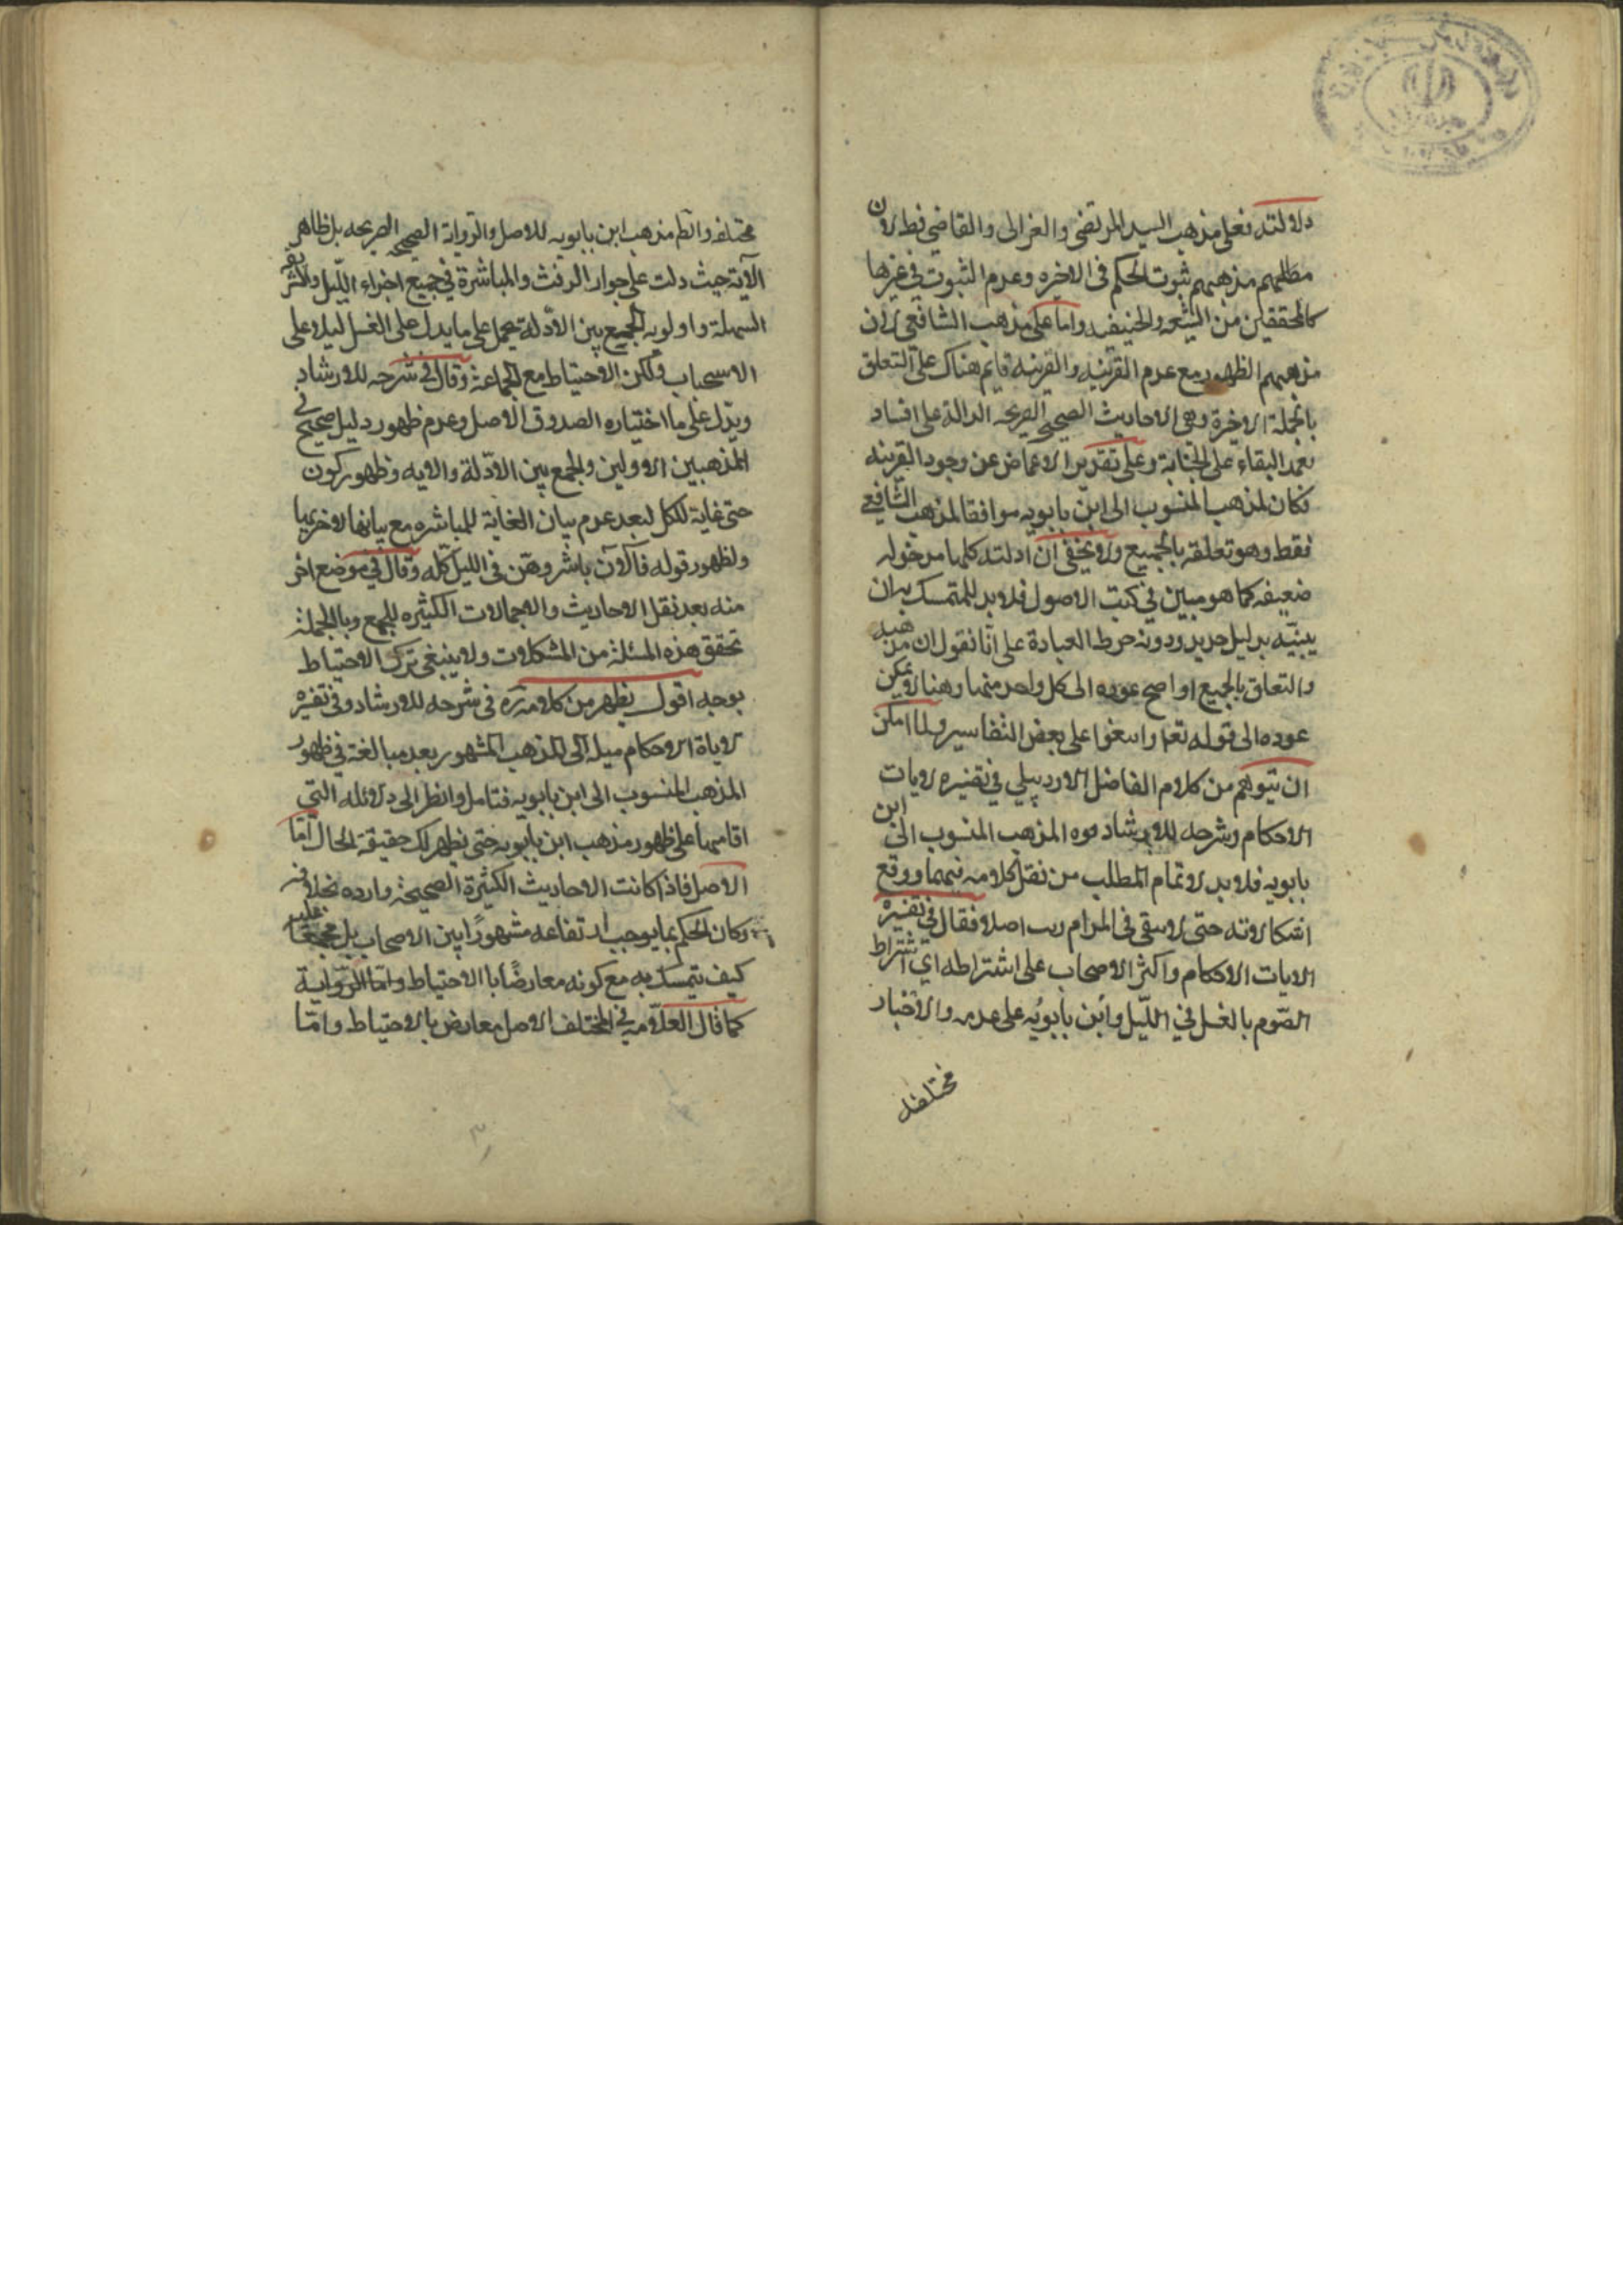 دلالته فعلى مذهب السيد المرتضى والغزالى والقاضي فط لان
مطلبهم مذهبهم ثبوت الحكم فى الاخيره وعدم الثبوت في غيرها
كالمحققين من الشيعه والحنيفه واما على مذهب الشافعي لان
مذهبهم الظهور مع عدم القرينه والقرينه قايم هناك على التعلق
بالجملة الاخيرة وهى الاحاديث الصحيحه الصريحه الدالة على افساد
تعمد البقاء على الجنابة وعلى تقدير الاغماض عن وجود القرينه
فكان المذهب المنسوب الى ابن بابويه موافقا لمذهب الشافعي
فقط وهو تعلقه بالجميع ولا يخفى ان ادلته كلها مدخوله
ضعيفه كما هو مبين في كتب الاصول فلا بد للمتمسك به ان
يبنيه بدليل جديد ودونه خرط العبادة على انا نقول ان مذهبه
والتعلق بالجميع اذا صح عوده الى كل واحد منها وهنا لا يمكن
عوده الى قوله تعا وابتغوا على بعض التفاسير ولما امكن
ان يتوهم من كلام الفاضل الاردبيلي في تفسيره لايات
الاحكام وشرحه للارشاد قوه المذهب المنسوب الى ابن
بابويه فلا بد لاتمام المطلب من نقل كلامه فيهما ووقع
اشكالاته حتى لا يبقى فى المرام ريب اصلا فقال في تفسيره
الايات الاحكام واكثر الاصحاب على اشتراطه اي اشتراط
الصوم بالغسل في الليل وابن بابويه على عدمه والاخبار
مختلفه
مختلفه والظم مذهب ابن بابويه للاصل والرواية الصحيحه الصريحه بل ظاهر
الآية حيث دلت على جواز الرفث والمباشرة في جميع اجزاء الليل
السهلة واولويه الجمع بين الادلة يحمل على ما يدل على الغسل ليلا على
الاستحباب ولكن الاحتياط مع الجماعة وقال في شرحه للارشاد
ويدل على ما اختياره الصدوق الاصل وعدم ظهور دليل صحيح في
المذهبين الاولين والجمع بين الادلة والايه وظهور كون
حتى غاية للكل لبعد عدم بيان الغاية للمباشره مع بيانها
ولظهور قوله فالآن باشروهن فى الليل كله وقال في موضع اخر
منه بعد نقل الاحاديث والاجمالات الكثيره للجمع وبالجملة
تحقق هذه المسئلة من المشكلات ولا ينبغى ترك الاحتياط
بوجه اقول يظهر من كلامه ره فى شرحه للارشاد وفى تفسيره
لاياة الاحكام ميله الى المذهب المشهور بعد مبالغة في ظهور
المذهب المنسوب الى ابن بابويه فتامل وانظر الى دلائله التي
اقامها على ظهور مذهب ابن بابويه حتى يظهر لك حقيقة الحال اما
الاصل فاذا كانت الاحاديث الكثيرة الصحيحة وارده بخلافه
وكان الحكم بما يوجب ارتفاعه مشهورًا بين الاصحاب بل مجمعا عليه
كيف يتمسك به مع كونه معارضًا بالاحتياط واما الرواية
كما قال العلامه في المختلف الاصل معارض بالاحتياط واما